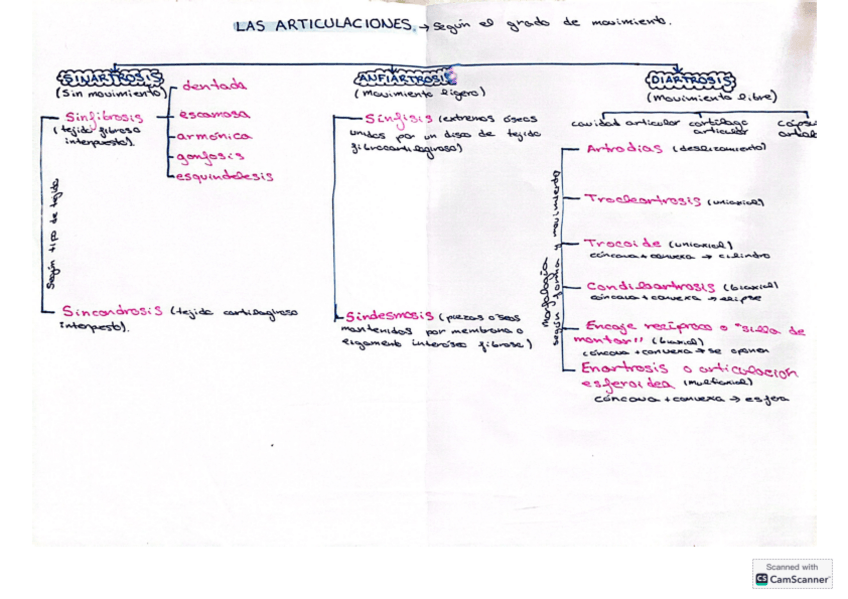 LAS ARTICULACIONES → según el grado de movimiento.
SINARTROSIS
(sin movimiento)
Sinfibrosis
(tejido fibroso
interpuesto).
dentada
escamosa
armónica
gonfosis
esquindelesis
Según tipo de tejido
Sincondrosis (tejido cartilaginoso
interpuesto).
ANFIARTROSIS
(movimiento ligero)
Sínfisis (extremos óseos
unidos por un disco de tejido
fibrocartilaginoso)
Sindesmosis (piezas óseas
mantenidas por membrana o
ligamento interóseo fibroso)
DIARTROSIS
(movimiento libre)
cavidad articular
cartílago
articular
Artrodias (deslizamiento)
morfología
según forma y movimiento
Trocleartrosis (uniaxial)
Trocoide (uniaxial)
cóncava + convexa → cilindro
Condiloartrosis (biaxial)
cóncava + convexa → elipse
Encaje recíproco o "silla de
montar" (biaxial)
cóncava + convexa → se oponen
Enartrosis o articulación
esferoidea (multiaxial)
cóncava + convexa → esfera
Scanned with
CS CamScanner